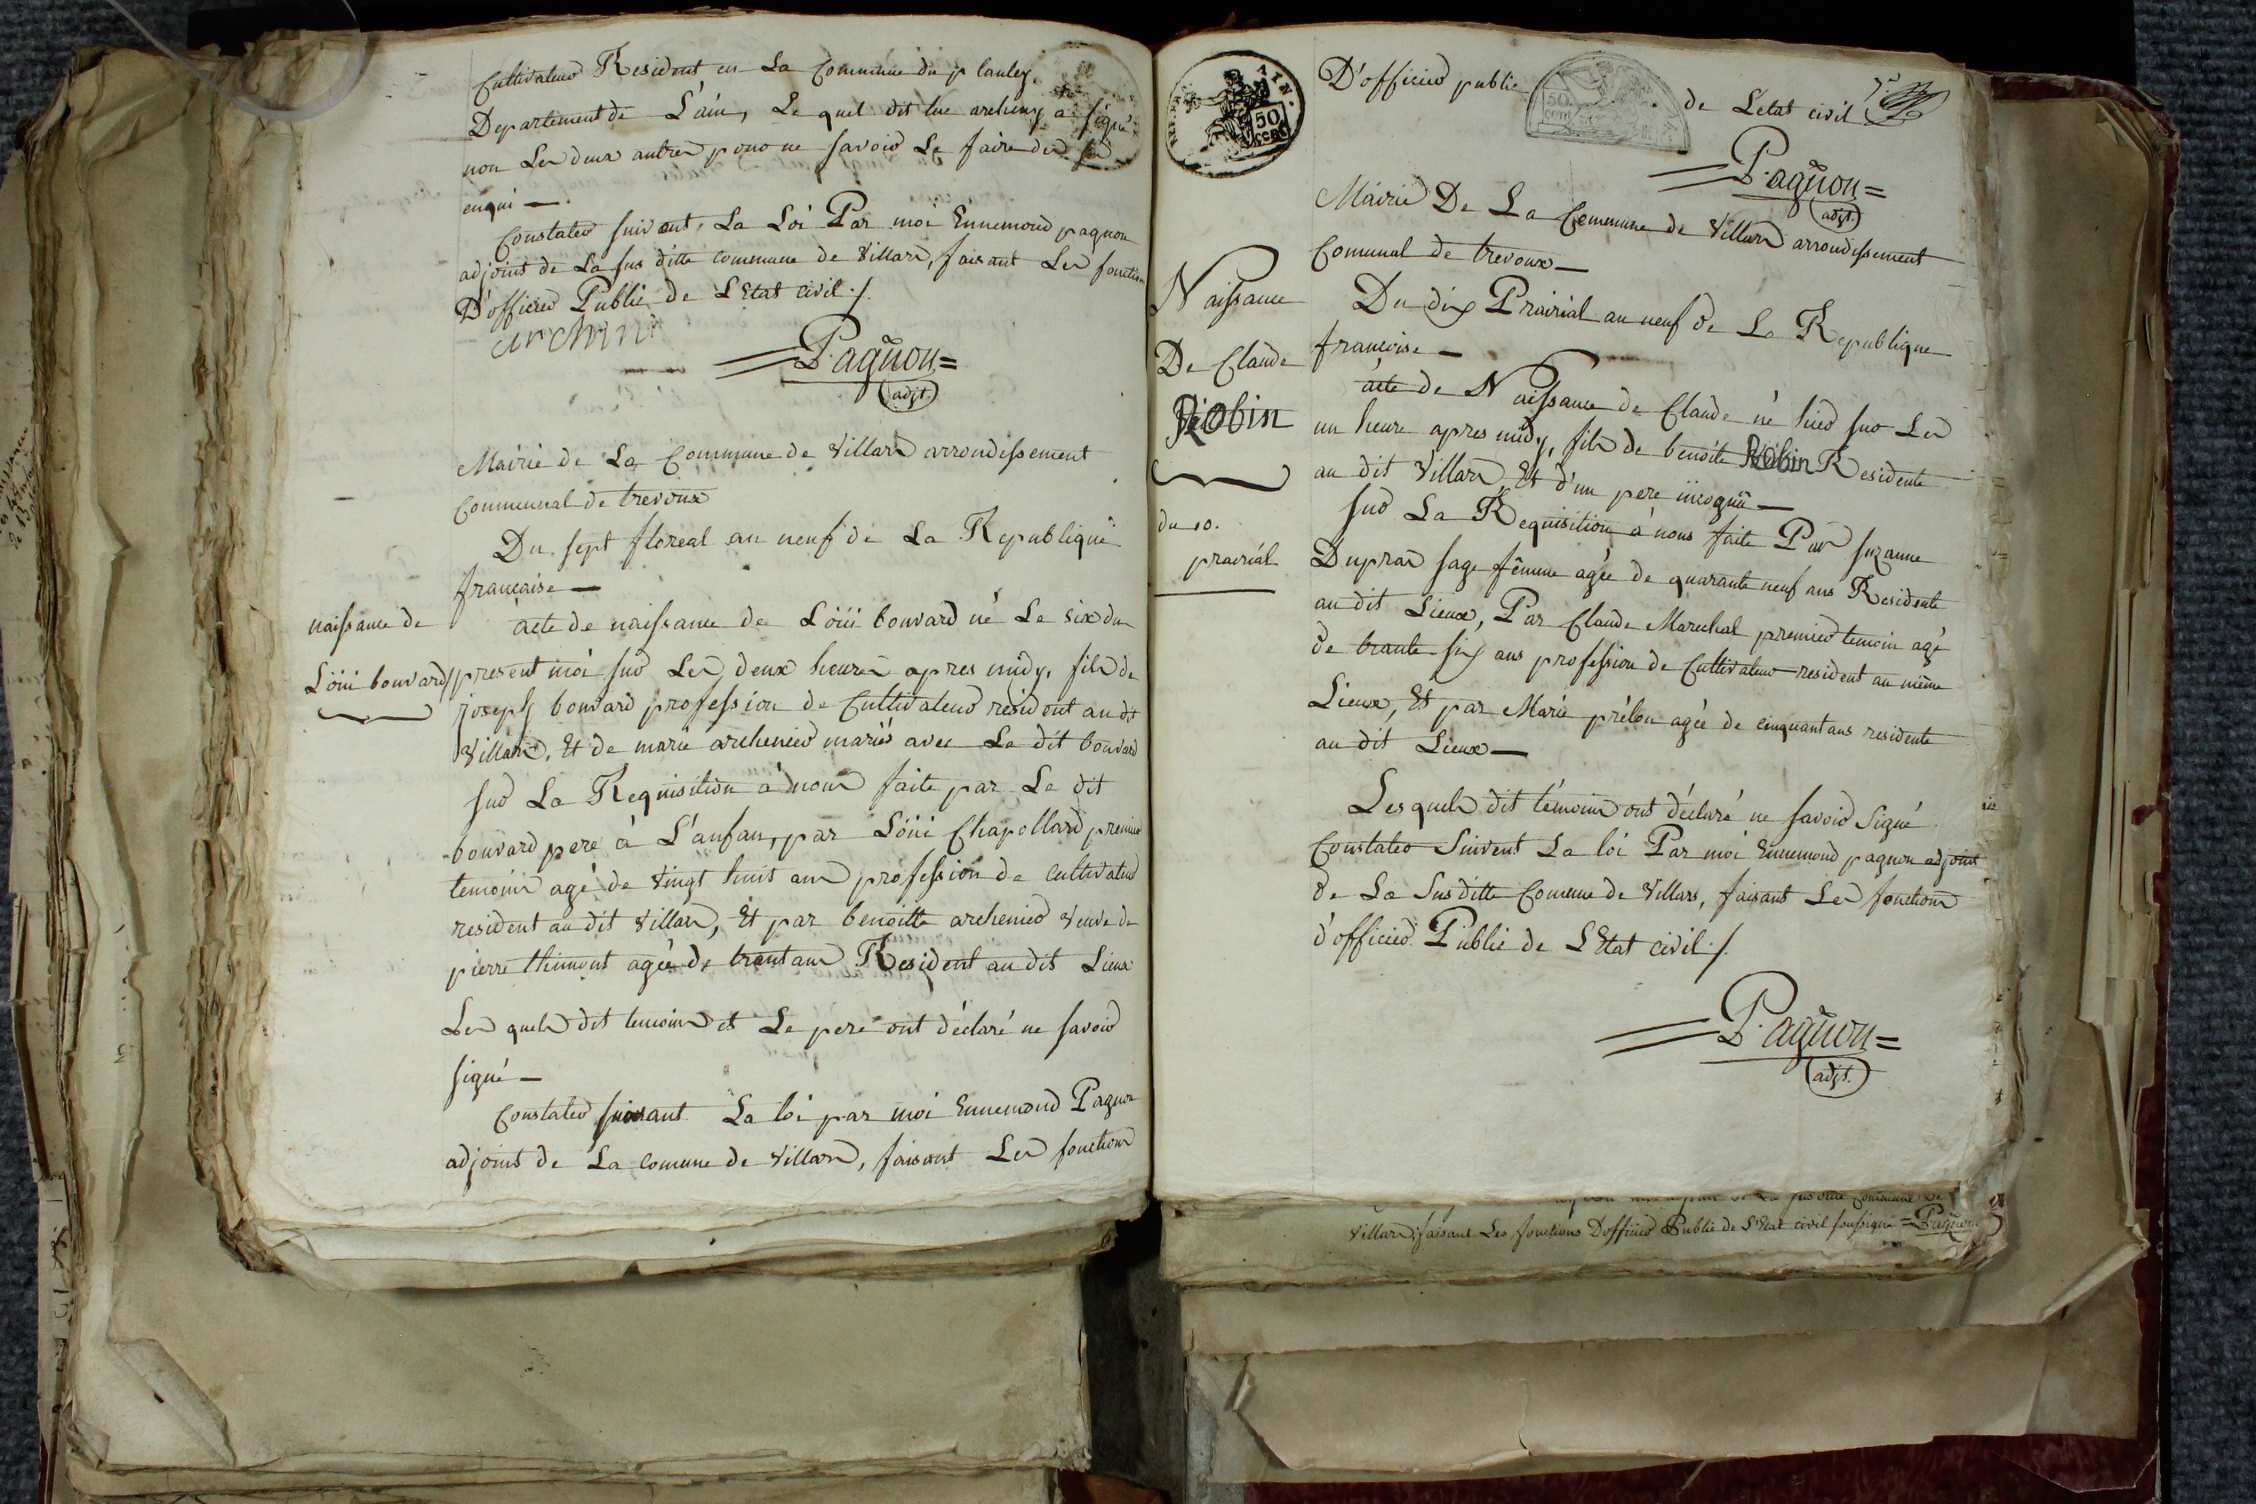 Cultivateur Resident en La Commune du p lantey
Departement de L'ain, Le quel dit luc archeny a signé
non Les deux autres pour ne savoir Le faire de ce
enqui —
Constater suivant, La Loi Par moi Ennemond pagnon
adjoint de La sus ditte commune de Villars, faisant Les fonction
D'officier Public de L'Etat civil ./.
= Pagnon =
adjt.
Mairie de La Commune de Villars arrondissement
Communal de trevoux
Du sept floreal an neuf de La Republique
française —
naissance de
Löüi bouvard
acte de naissance de Löüi bouvard né Le six du
present moi sur Les deux heures apres midy, fils de
joseph bouvard profession de Cultivateur resident au dt
Villars, Et de marie archenier mariés avec Le dit bouvard
sur La Requisition à nous faite par Le dit
bouvard pere à L'anfan, par Löüi Chapollard premier
temoin agé de Vingt huit ans profession de cultivateur
resident au dit Villars, Et par benoitte archenier Veuve de
pierre thimont agée de trant ans Resident au dit Lieux
Les quels dit temoins et Le pere ont déclaré ne savoir
signé —
Constater suivant La loi par moi Ennemond Pagnon
adjoint de La comune de Villars, faisant Les fonctions
AIN.
50
CENT
D'officier public
50
CENT
de L'etat civil
= Pagnon =
adjt.
Mairie De La Commune de Villars arrondissement
Comunal de trevoux —
Naissance
De Claude
Robin
du 10.
prairial
Du dix Prairial an neuf de La Republique
françoise —
acte de Naissance de Claude né hier sur Les
un heure apres midy, fils de benoite Robin Residente
au dit Villars, Et d'un pere incognü —
sur La Requisition à nous faite Par suzanne
Dupras sage fêmme agée de quarante neuf ans Residente
au dit Lieux, Par Claude Marechal premier temoin agé
de trante six ans profession de Cultivateur resident au même
Lieux, Et par Marie prélon agée de cinquant ans residente
au dit Lieux —
Les quels dit témoins ont déclaré ne savoir signé
Constater Suivent La loi Par moi Ennemond pagnon adjoint
de La Sus ditte Comune de Villars, faisant Les fonctions
d'officier Public de L'Etat civil ./.
= Pagnon =
adjt.
Villars, faisant Les fonctions D'officier Public de L'Etat civil soussigné = Pagnon